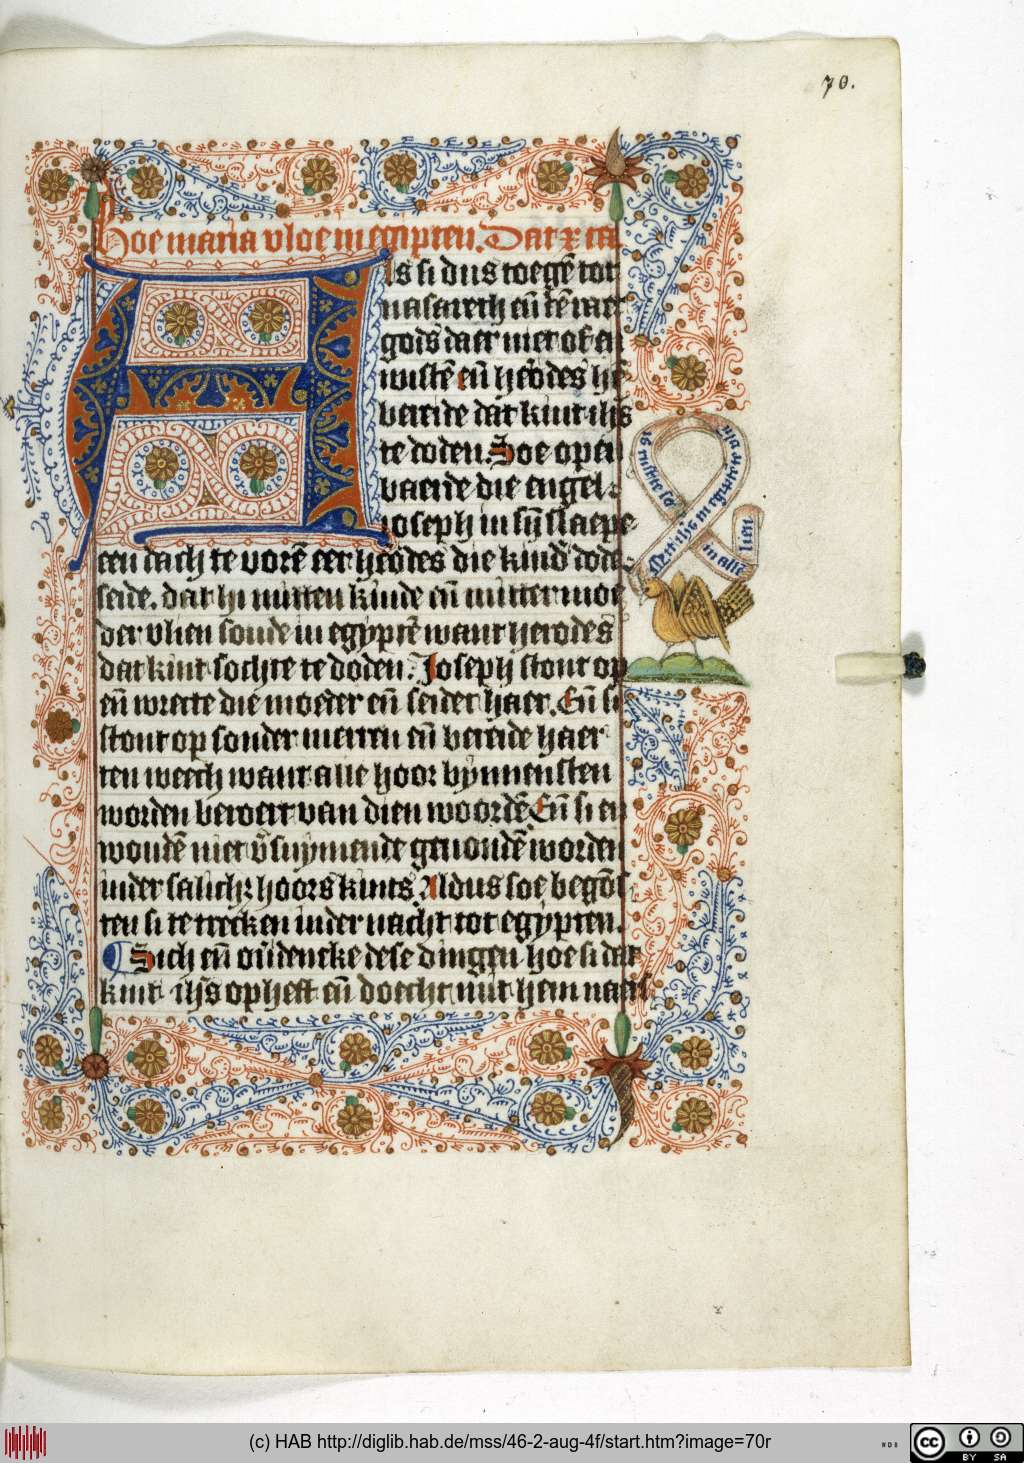 70.
Hoe maria vloe in egipten. Dat x ca
Als si dus toegē tot
nasareth eñ tē raet
gods daer niet of en
wistē eñ herodes hē
bereide dat kint ihs
te doden. Soe open
baerde die engel
ioseph in sijn slaepe
een dach te vorē eer herodes die kind dode
seide. dat hi mitten kinde eñ mitter moe
der vlien soude in egyptē want herodes
dat kint sochte te doden. Joseph stont op
eñ wecte die moeder eñ seidet haer. Eñ si
stont op sonder merren eñ bereide haer
ten weech want alle hoor bynnensten
worden beroert van dien woordē Eñ si en
woudē niet v̄suymende gevondē worden
inder salicht hoors kints Aldus soe begōs
ten si te trecken inder nacht tot egypten.
Sich eñ ov̄dencke dese dingen hoe si dat
kint ihs opheft eñ doecht mit hem na
Met ihs in egypten
in alle
lien
(c) HAB http://diglib.hab.de/mss/46-2-aug-4f/start.htm?image=70r
WDB
cc
BY SA